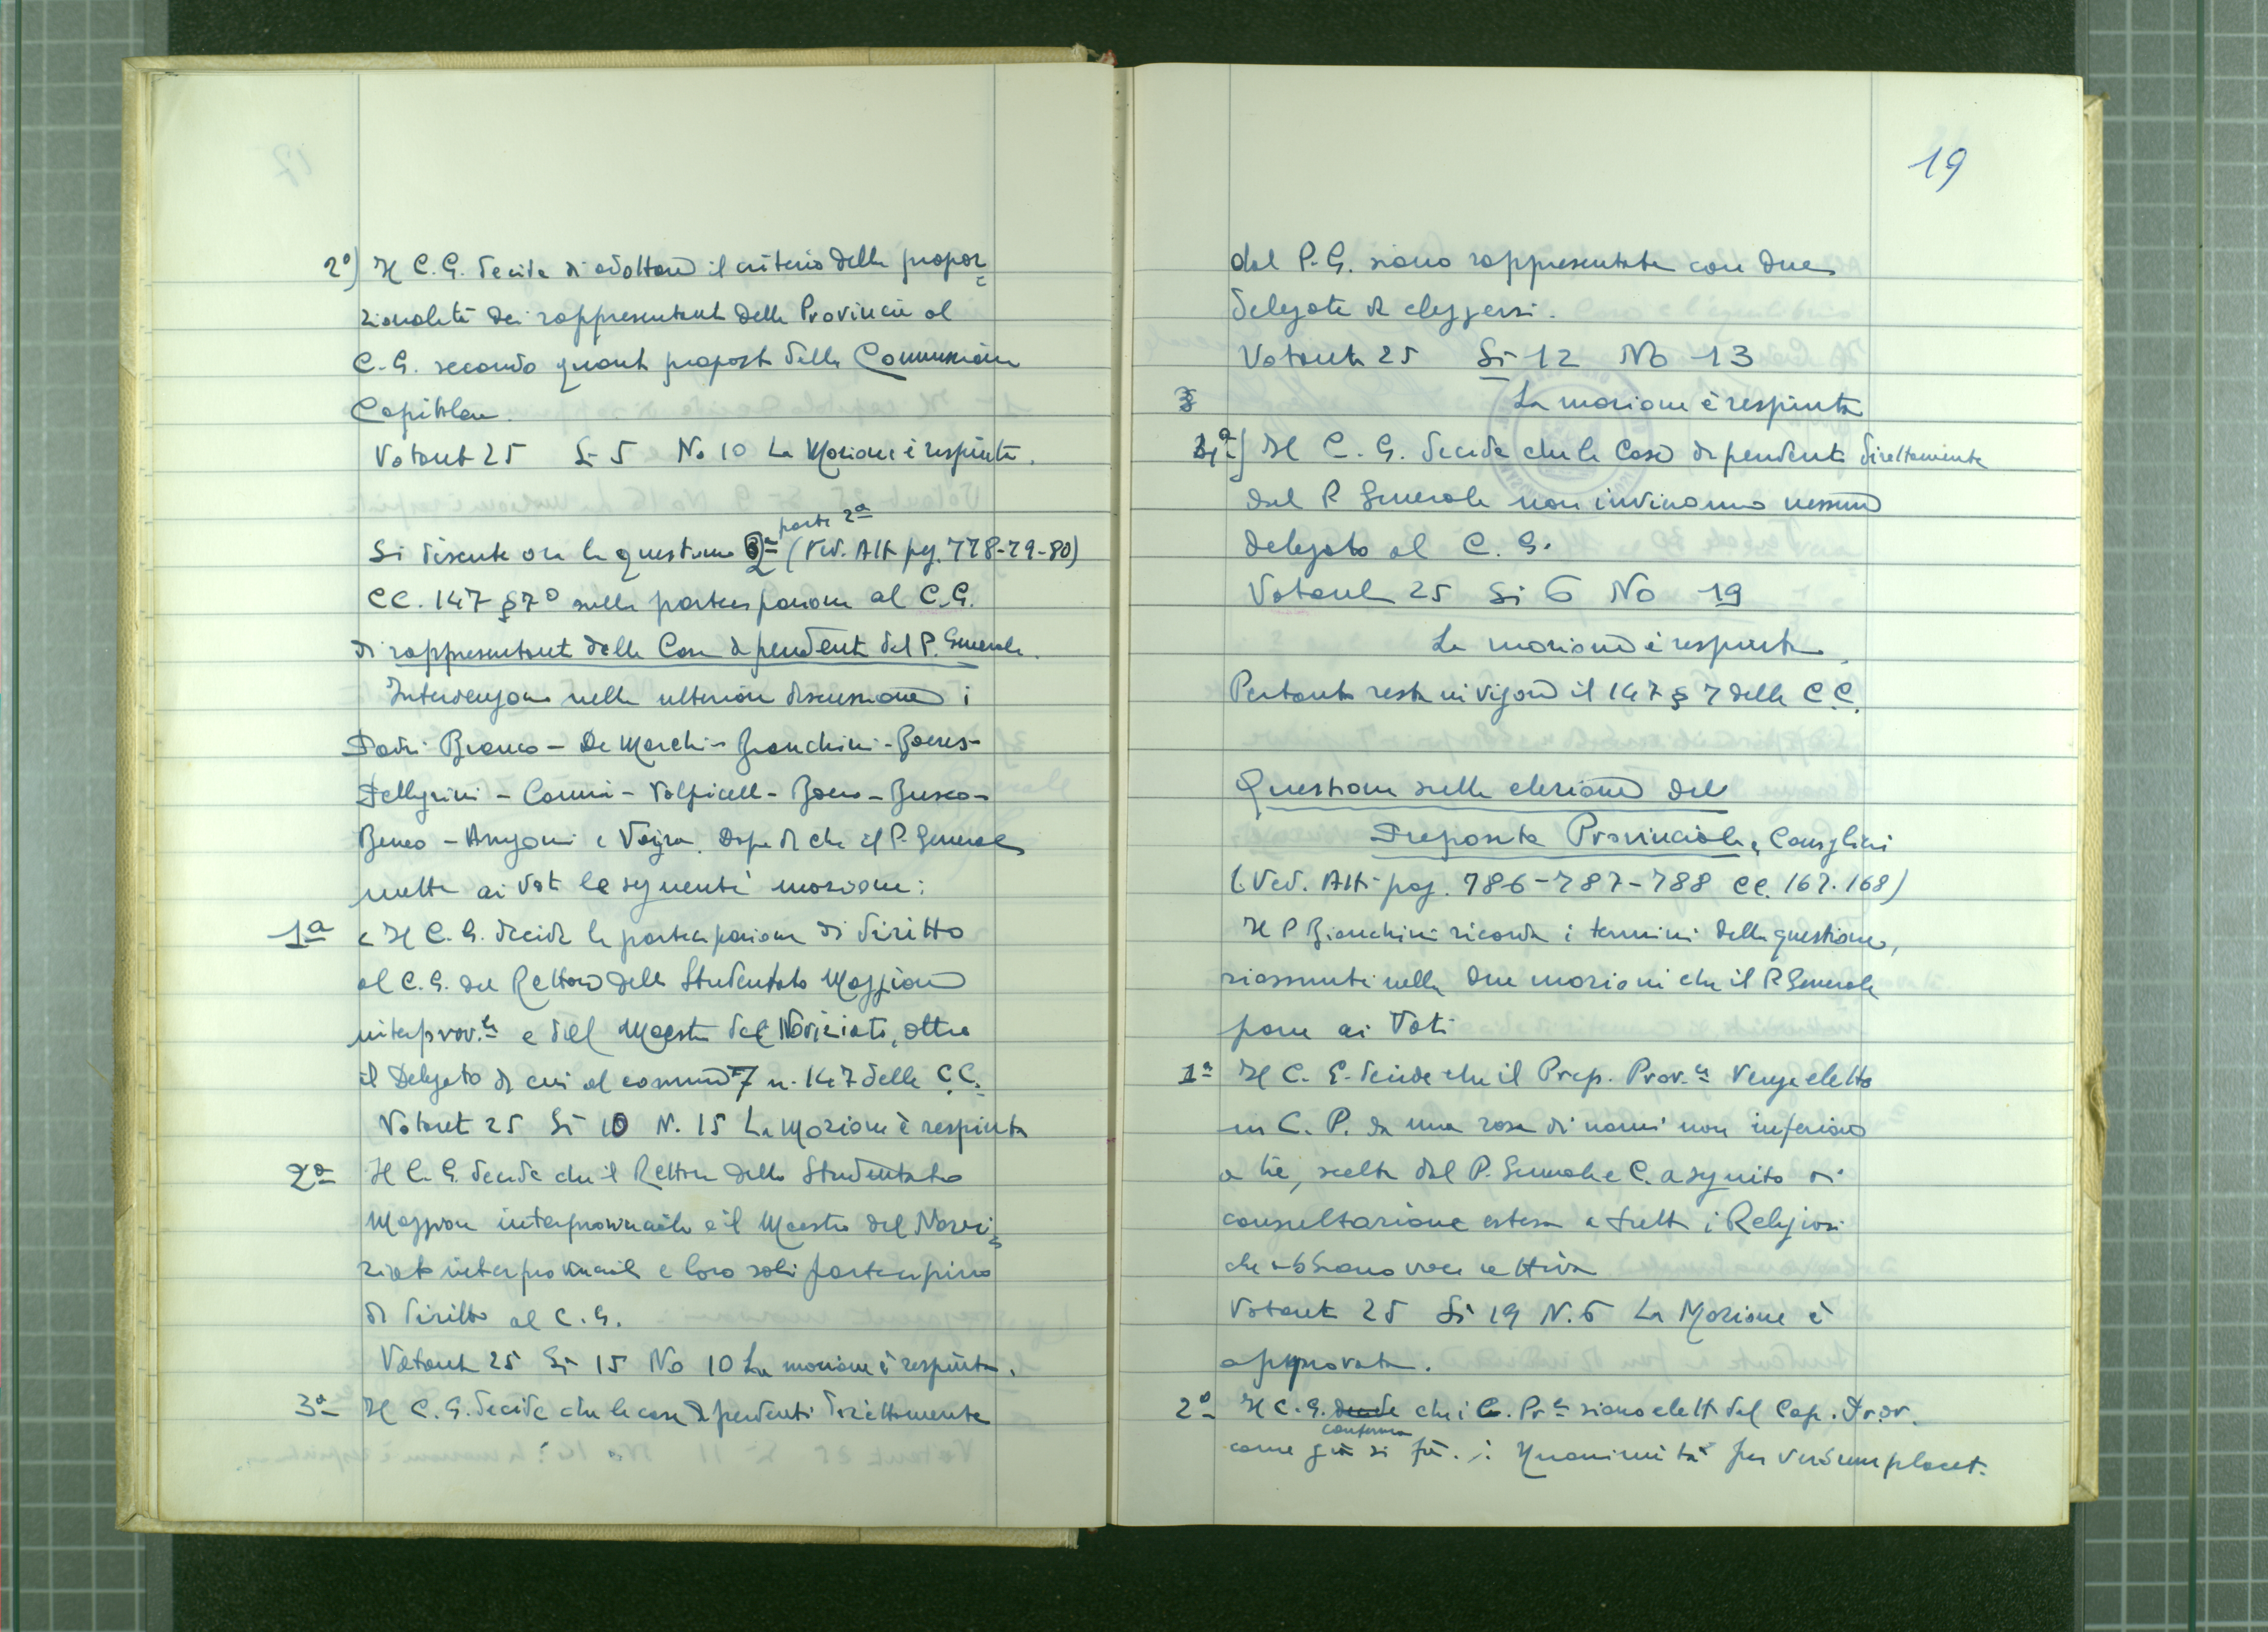 2º) Il C. G. decide di adottare il criterio della propor=
zionalità dei rappresentanti delle Provincie al
C. G. secondo quanto proposto dalla Commissione
Capitolare.
Votanti 25 Si 5 No 10 La Mozione è respinta.
parte 2ª
Si discute ora la questione 2ª (Ved. Atti pag. 778-79-80)
CC. 147 § 7º sulla partecipazione al C.G.
di rappresentanti delle Case dipendenti dal P. Generale.
Intervengono nella ulteriore discussione i
Padri Bianco - De Marchi - Bianchini - Boeris -
Pellegrini - Volpicelli - Boero - Busco -
Beneo - Angoni e Vajra. Dopo di che il P. Generale
mette ai voti le seguenti mozioni:
1ª Il C. G. decide la partecipazione di diritto
al C. G. del Rettore dello Studentato Maggiore
interprov.le e del Maestro del Noviziato, oltre
il Delegato di cui al comma 7 n. 147 delle C.C.
Votanti 25 Si 10 N. 15 La Mozione è respinta
2ª Il C. G. decide che il Rettore dello Studentato
Maggiore interprovinciale e il Maestro del Novi=
ziato interprovinciale e loro soli partecipino
di diritto al C. G.
Votanti 25 Si 15 No 10 La mozione è respinta.
3ª Il C. G. decide che le case dipendenti direttamente
19
dal P. G. siano rappresentate con due
delegati da eleggersi.
Votanti 25 Si 12 No 13
La mozione è respinta
4ª) Il C. G. decide che le Case dipendenti direttamente
dal P. Generale non inviino nessun
delegato al C. G.
Votanti 25 Si 6 No 19
La mozione è respinta.
Pertanto resta in vigore il 147 § 7 delle C.C.
Questione sulla elezione del
Preposito Provinciale e Consiglieri
(Ved. Atti pag. 786-787-788 CC. 167. 168)
Il P. Bianchini ricorda i termini della questione,
riassunti nelle due mozioni che il P. Generale
pone ai Voti
1ª Il C. G. decide che il Prep. Prov.le venga eletto
in C. P. da una rosa di nomi non inferiore
a tre, scelta dal P. Generale e C. a seguito di
consultazione estesa a tutti i Religiosi
che abbiano voce attiva
Votanti 25 Si 19 N. 6 La Mozione è
approvata.
2ª Il C. G. decide che i C. Pr.li siano eletti dal Cap. Prov.
conferma
come già si fa. Unanimità per verbum placet.